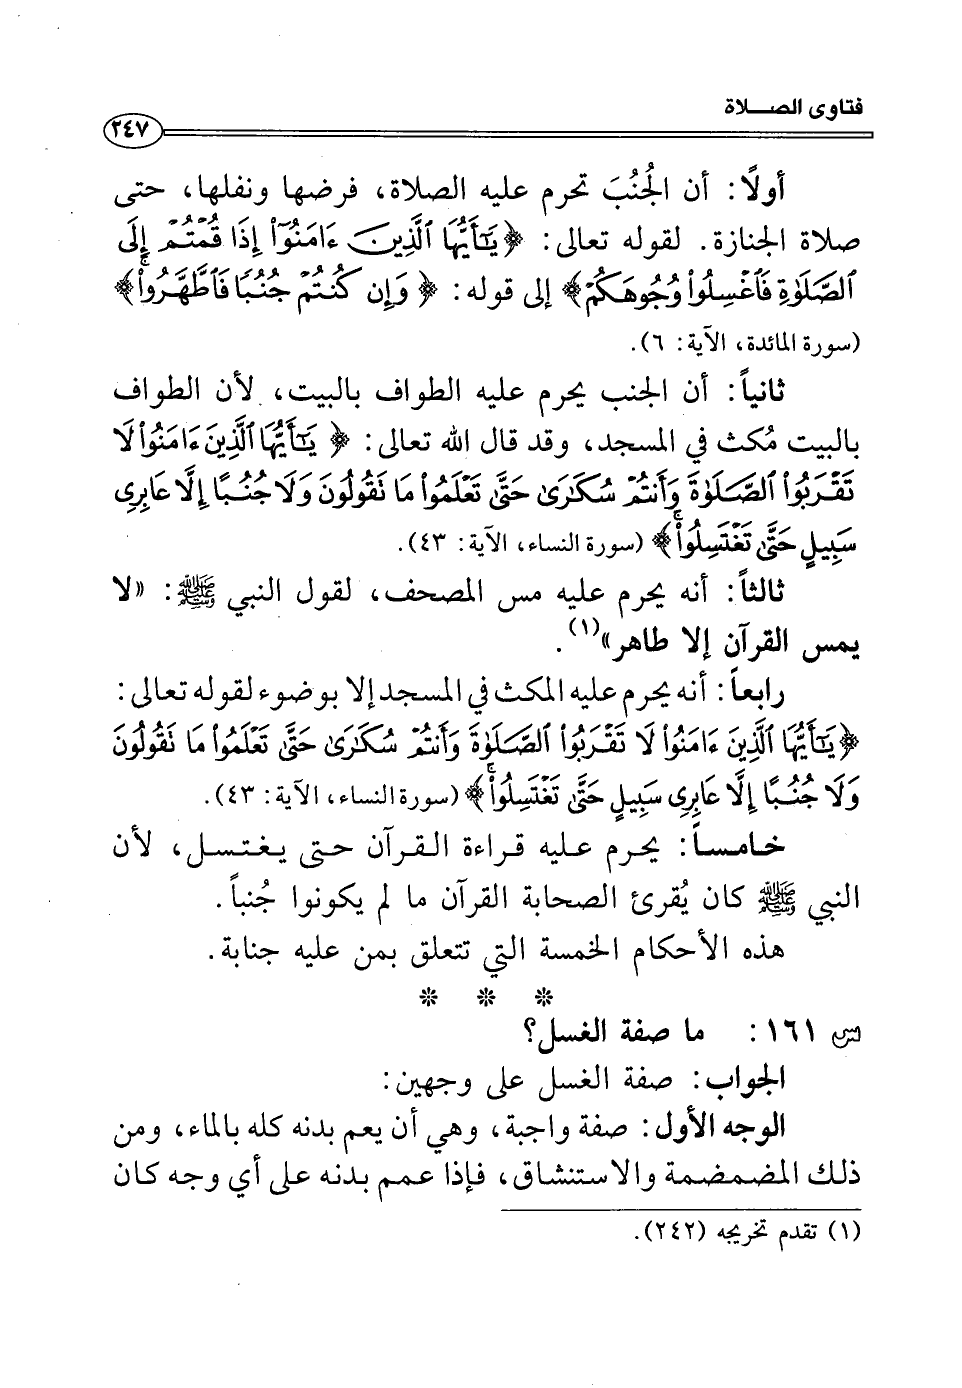 فتاوى الصـــلاة
٢٤٧
أولًا: أن الجُنُبَ تحرم عليه الصلاة، فرضها ونفلها، حتى
صلاة الجنازة. لقوله تعالى: ﴿يَٰٓأَيُّهَا ٱلَّذِينَ ءَامَنُوٓا۟ إِذَا قُمْتُمْ إِلَى
ٱلصَّلَوٰةِ فَٱغْسِلُوا۟ وُجُوهَكُمْ﴾ إلى قوله: ﴿وَإِن كُنتُمْ جُنُبًا فَٱطَّهَّرُوا۟ۚ﴾
(سورة المائدة، الآية: ٦).
ثانياً: أن الجنب يحرم عليه الطواف بالبيت، لأن الطواف
بالبيت مُكث في المسجد، وقد قال الله تعالى: ﴿يَٰٓأَيُّهَا ٱلَّذِينَ ءَامَنُوا۟ لَا
تَقْرَبُوا۟ ٱلصَّلَوٰةَ وَأَنتُمْ سُكَٰرَىٰ حَتَّىٰ تَعْلَمُوا۟ مَا تَقُولُونَ وَلَا جُنُبًا إِلَّا عَابِرِى
سَبِيلٍ حَتَّىٰ تَغْتَسِلُوا۟ۚ﴾ (سورة النساء، الآية: ٤٣).
ثالثاً: أنه يحرم عليه مس المصحف، لقول النبي ﷺ: «لا
يمس القرآن إلا طاهر»(١).
رابعاً: أنه يحرم عليه المكث في المسجد إلا بوضوء لقوله تعالى:
﴿يَٰٓأَيُّهَا ٱلَّذِينَ ءَامَنُوا۟ لَا تَقْرَبُوا۟ ٱلصَّلَوٰةَ وَأَنتُمْ سُكَٰرَىٰ حَتَّىٰ تَعْلَمُوا۟ مَا تَقُولُونَ
وَلَا جُنُبًا إِلَّا عَابِرِى سَبِيلٍ حَتَّىٰ تَغْتَسِلُوا۟ۚ﴾ (سورة النساء، الآية: ٤٣).
خامساً: يحرم عليه قراءة القرآن حتى يغتسل، لأن
النبي ﷺ كان يُقرئ الصحابة القرآن ما لم يكونوا جُنباً.
هذه الأحكام الخمسة التي تتعلق بمن عليه جنابة.
* * *
س ١٦١: ما صفة الغسل؟
الجواب: صفة الغسل على وجهين:
الوجه الأول: صفة واجبة، وهي أن يعم بدنه كله بالماء، ومن
ذلك المضمضة والاستنشاق، فإذا عمم بدنه على أي وجه كان
(١) تقدم تخريجه (٢٤٢).